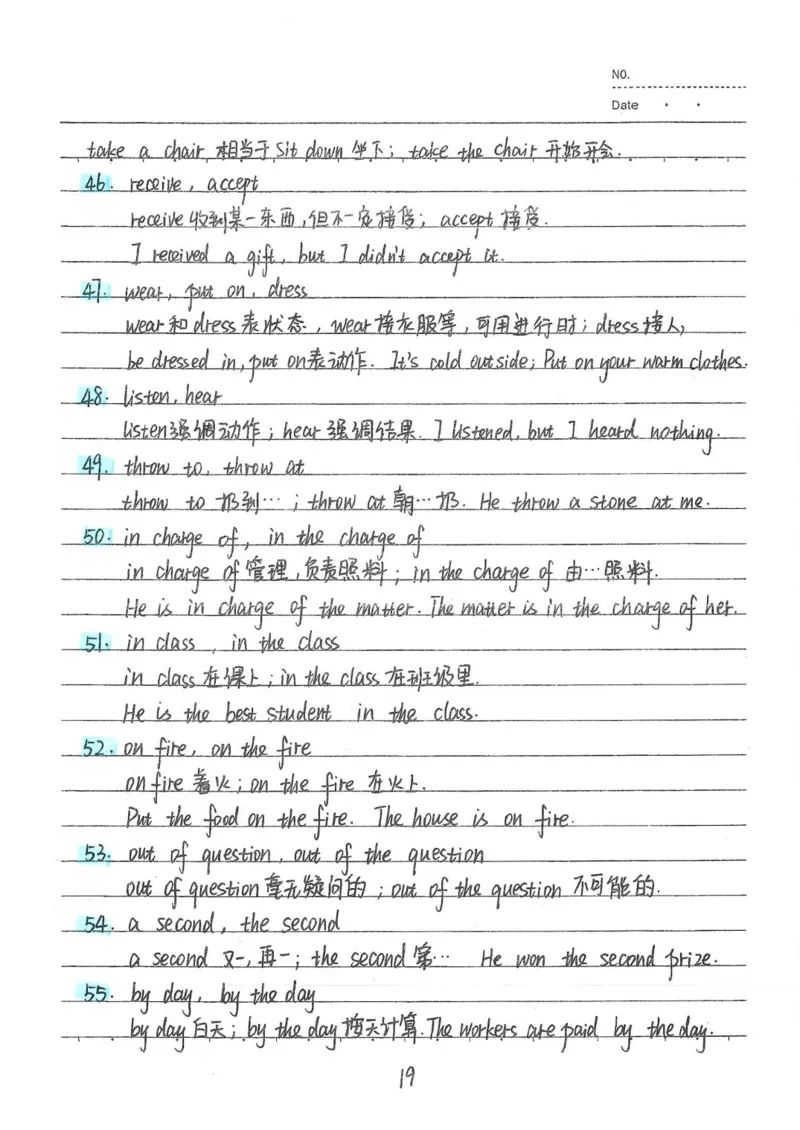 NO.
Date
take a chair 相当于 sit down 坐下; take the chair 开始开会.
46. receive, accept
receive 收到某一东西,但不一定接受; accept 接受.
I received a gift, but I didn't accept it.
47. wear, put on, dress
wear和dress表状态, wear接衣服等,可用进行时; dress接人,
be dressed in, put on表动作. It's cold outside; Put on your warm clothes.
48. listen, hear
listen强调动作; hear强调结果. I listened, but I heard nothing.
49. throw to, throw at
throw to 扔到…; throw at 朝…扔. He throw a stone at me.
50. in charge of, in the charge of
in charge of 管理,负责照料; in the charge of 由…照料.
He is in charge of the matter. The matter is in the charge of her.
51. in class, in the class
in class 在课上; in the class 在班级里.
He is the best student in the class.
52. on fire, on the fire
on fire 着火; on the fire 在火上.
Put the food on the fire. The house is on fire.
53. out of question, out of the question
out of question 毫无疑问的; out of the question 不可能的.
54. a second, the second
a second 又一,再一; the second 第… He won the second prize.
55. by day, by the day
by day 白天; by the day 按天计算. The workers are paid by the day.
19